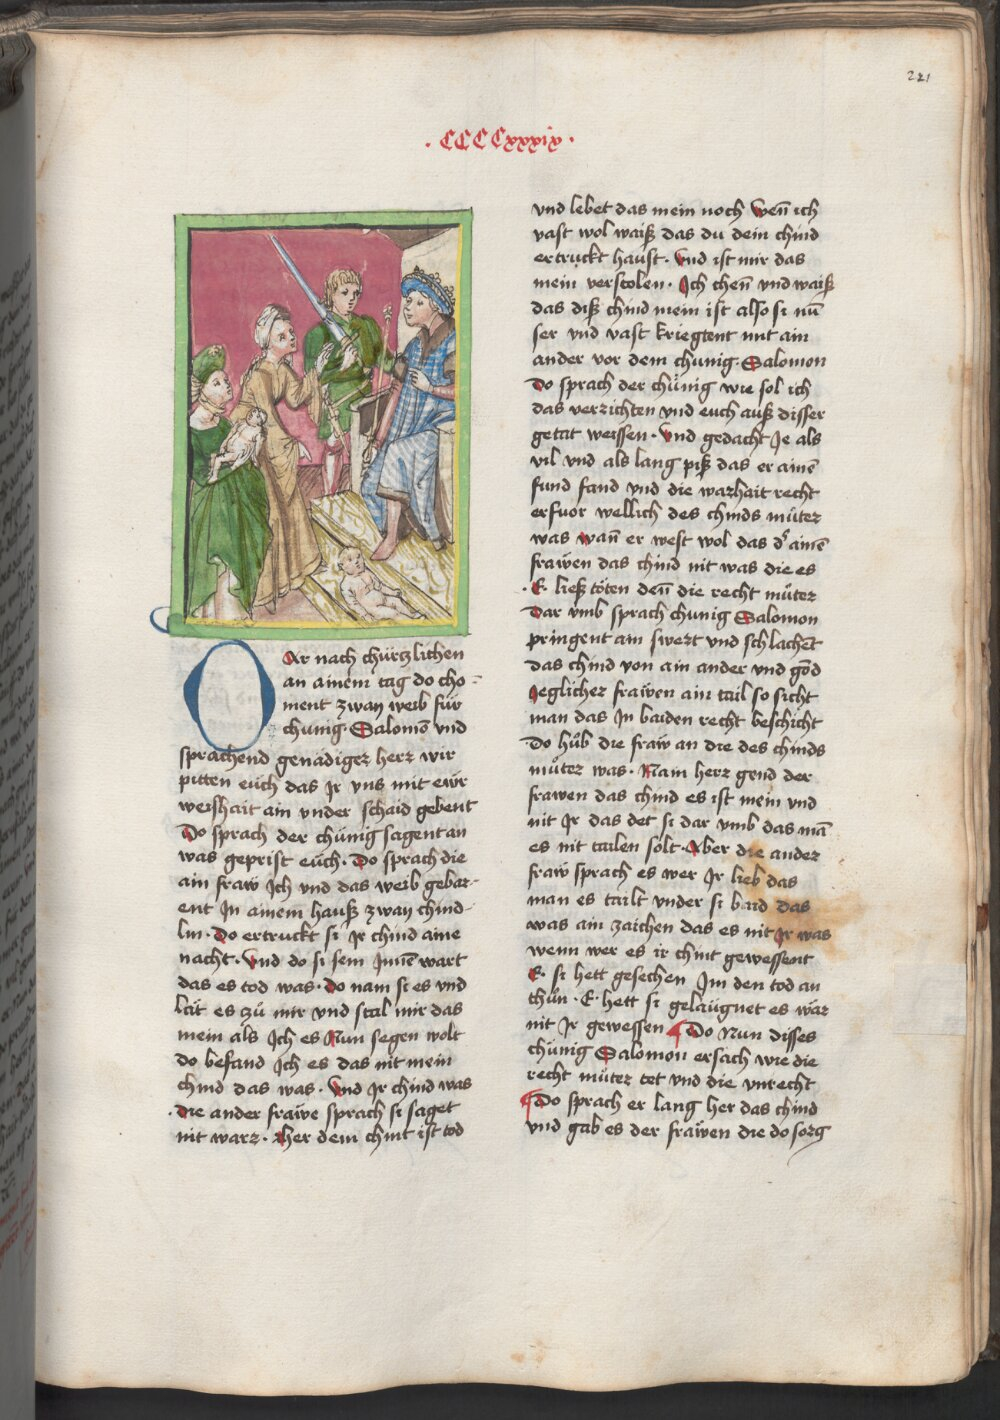 221
· CCCCxxxix ·
OAr nach chürtzlichen
an ainem tag do cho-
ment zway weib für
chünig · Salomō vnd
sprachend genädiger herr wir
pitten eüch das Jr vns mit ewr
weishait ain vnder schaid gebent
Do sprach der chünig sagent an
was geprist eüch · Do sprach die
ain fraw Jch vnd das weib gebar-
ent Jn ainem hauß zway chind-
lin · Do ertruckt si Jr chind aine
nacht · Vnd do si sein Jnnē wart
das es tod was · do nam si es vnd
lait es zů mir vnd stal mir das
mein als Jch es Nun segen wolt
do befand Jch es das nit mein
chind das was · Vnd Jr chind was
· Die ander frawe sprach si saget
nit warr · Aber dem chint ist tod
vnd lebet das mein noch Wen̄ ich
vast wol waiß das du dein chind
ertruckt haust · Vnd ist mir das
mein verstolen · Jch chen̄ vnd waiß
das diß chind mein ist also si nū
ser vnd vast kriegtent mit ain
ander vor dem chunig · Salomon
Do sprach der chünig wie sol ich
das verrichten vnd euch auß disser
getat weissen · Vnd gedacht Je als
vil vnd als lang piß das er ainē
fund fand vnd die warhait recht
erfuor wellich des chinds můter
was wan̄ er west wol das d' ainē
frawen das chind nit was die es
· E · ließ töten den̄ die recht můter
Dar vmb sprach chunig Salomon
pringent ain swert vnd schlachent
das chind von ain ander vnd gend
Jeglicher frawen ain tail so sicht
man das Jn baiden recht beschicht
· Do hůb die fraw an die des chinds
můter was · Nain herr gend der
frawen das chind es ist mein vnd
nit Jr das det si dar vmb das mā
es nit tailen solt · Aber die ander
fraw sprach es wer Jr lieb das
man es tailt vnder si baid das
was ain zaichen das es nit Jr was
wenn wer es ir chint gewessent
E · si hett gesechen Jm den tod an
thůn · E · hett si gelaugnet es wär
nit Jr gewessen ¶ Do Nun disses
chünig Salomon ersach wie die
recht můter tet vnd die vnrecht
¶ Do sprach er lang her das chind
vnd gab es der frawen die do sorg